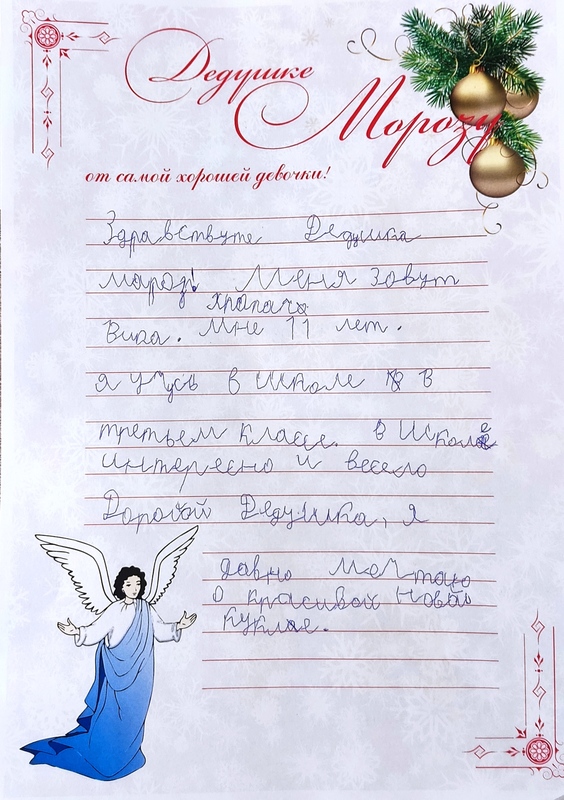 Дедушке
Морозу
от самой хорошей девочки!
Здравствуте Дедушка
марод! Меня зовут
Вика. Мне 11 лет.
я учусь в школе в
третьем класее. в школе
интересно и весело
Дорогой Дедушка, я
давно мечтаю
о красивой новой
кукле.